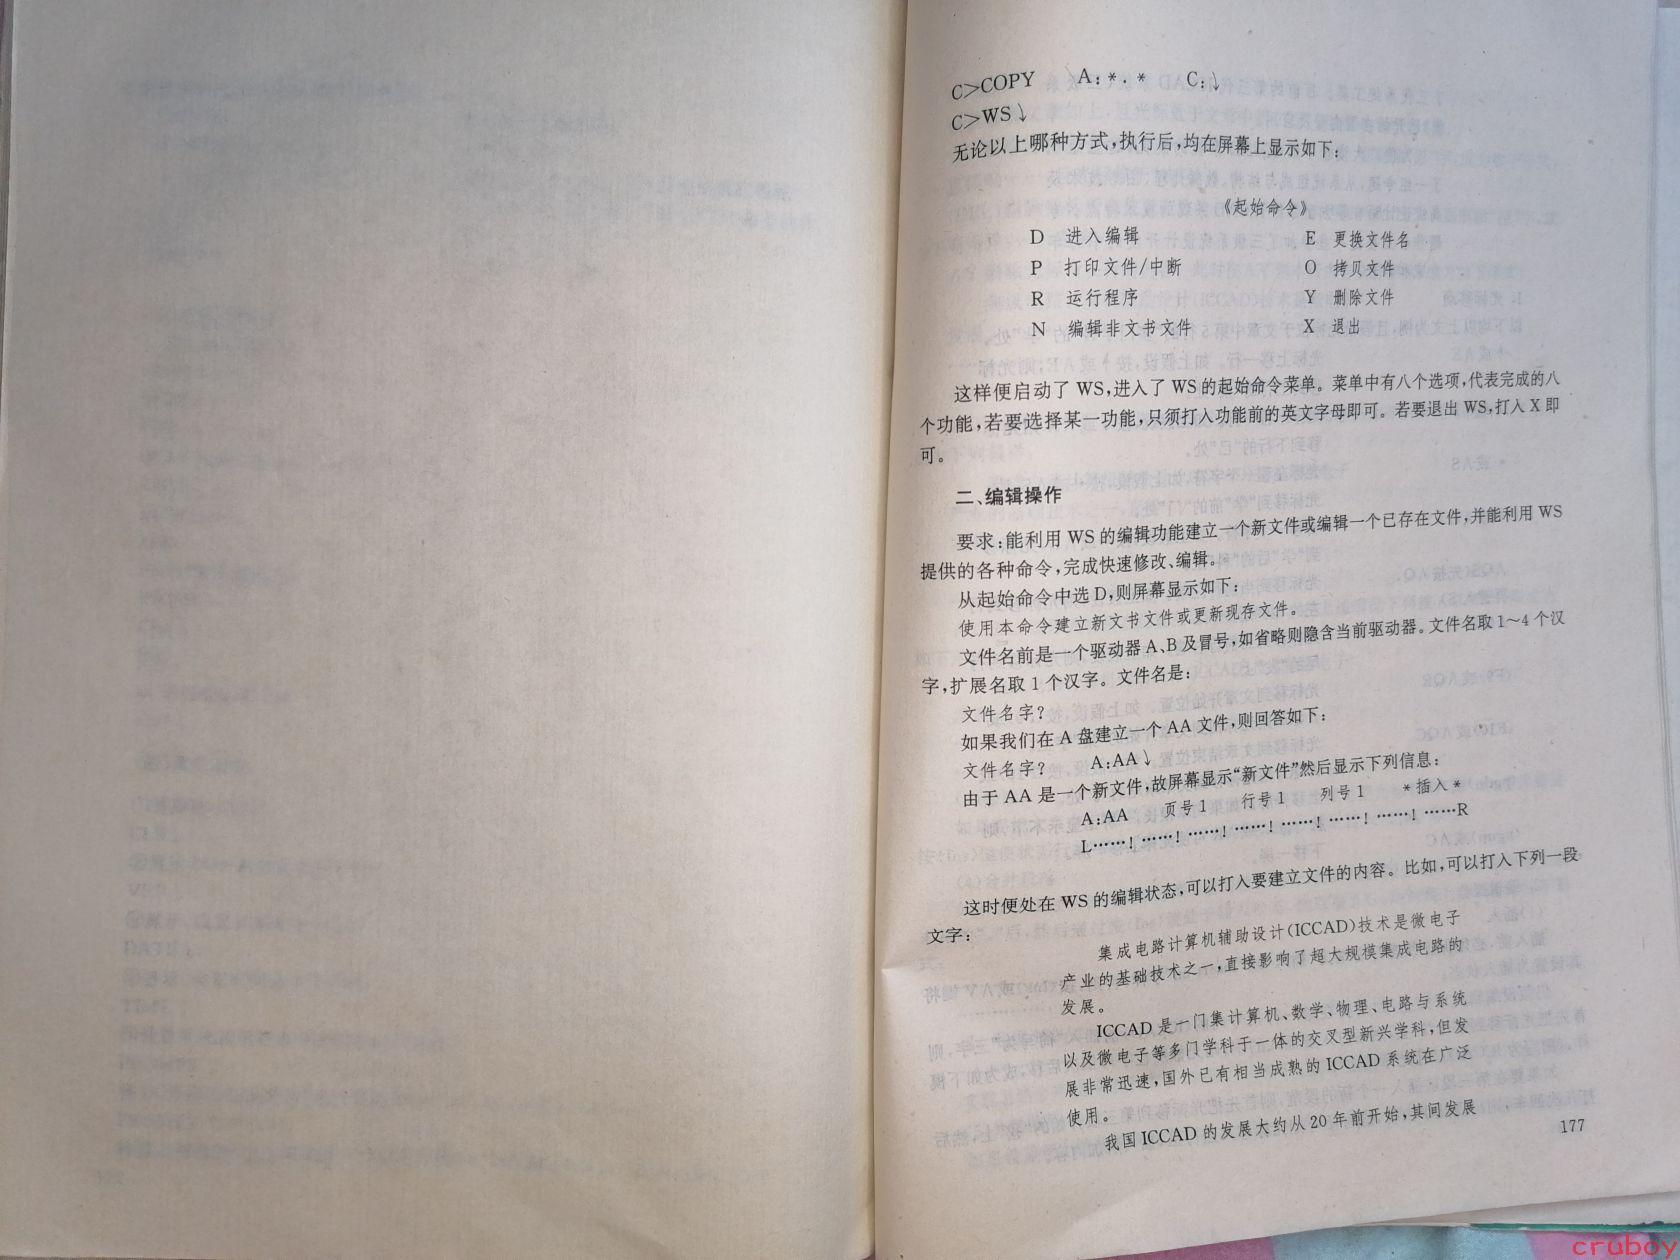 C>COPY A:*.* C:↓
C>WS↓
无论以上哪种方式,执行后,均在屏幕上显示如下:
《起始命令》
D 进入编辑 E 更换文件名
P 打印文件/中断 O 拷贝文件
R 运行程序 Y 删除文件
N 编辑非文书文件 X 退出
这样便启动了 WS,进入了 WS 的起始命令菜单。菜单中有八个选项,代表完成的八
个功能,若要选择某一功能,只须打入功能前的英文字母即可。若要退出 WS,打入 X 即
可。
二、编辑操作
要求:能利用 WS 的编辑功能建立一个新文件或编辑一个已存在文件,并能利用 WS
提供的各种命令,完成快速修改、编辑。
从起始命令中选 D,则屏幕显示如下:
使用本命令建立新文书文件或更新现存文件。
文件名前是一个驱动器 A、B 及冒号,如省略则隐含当前驱动器。文件名取 1~4 个汉
字,扩展名取 1 个汉字。文件名是:
文件名字?
如果我们在 A 盘建立一个 AA 文件,则回答如下:
文件名字? A:AA↓
由于 AA 是一个新文件,故屏幕显示“新文件”然后显示下列信息:
A:AA 页号 1 行号 1 列号 1 *插入*
L……!……!……!……!……!……!……!……R
这时便处在 WS 的编辑状态,可以打入要建立文件的内容。比如,可以打入下列一段
文字:
集成电路计算机辅助设计(ICCAD)技术是微电子
产业的基础技术之一,直接影响了超大规模集成电路的
发展。
ICCAD 是一门集计算机、数学、物理、电路与系统
以及微电子等多门学科于一体的交叉型新兴学科,但发
展非常迅速,国外已有相当成熟的 ICCAD 系统在广泛
使用。
我国 ICCAD 的发展大约从 20 年前开始,其间发展
177
cruboy